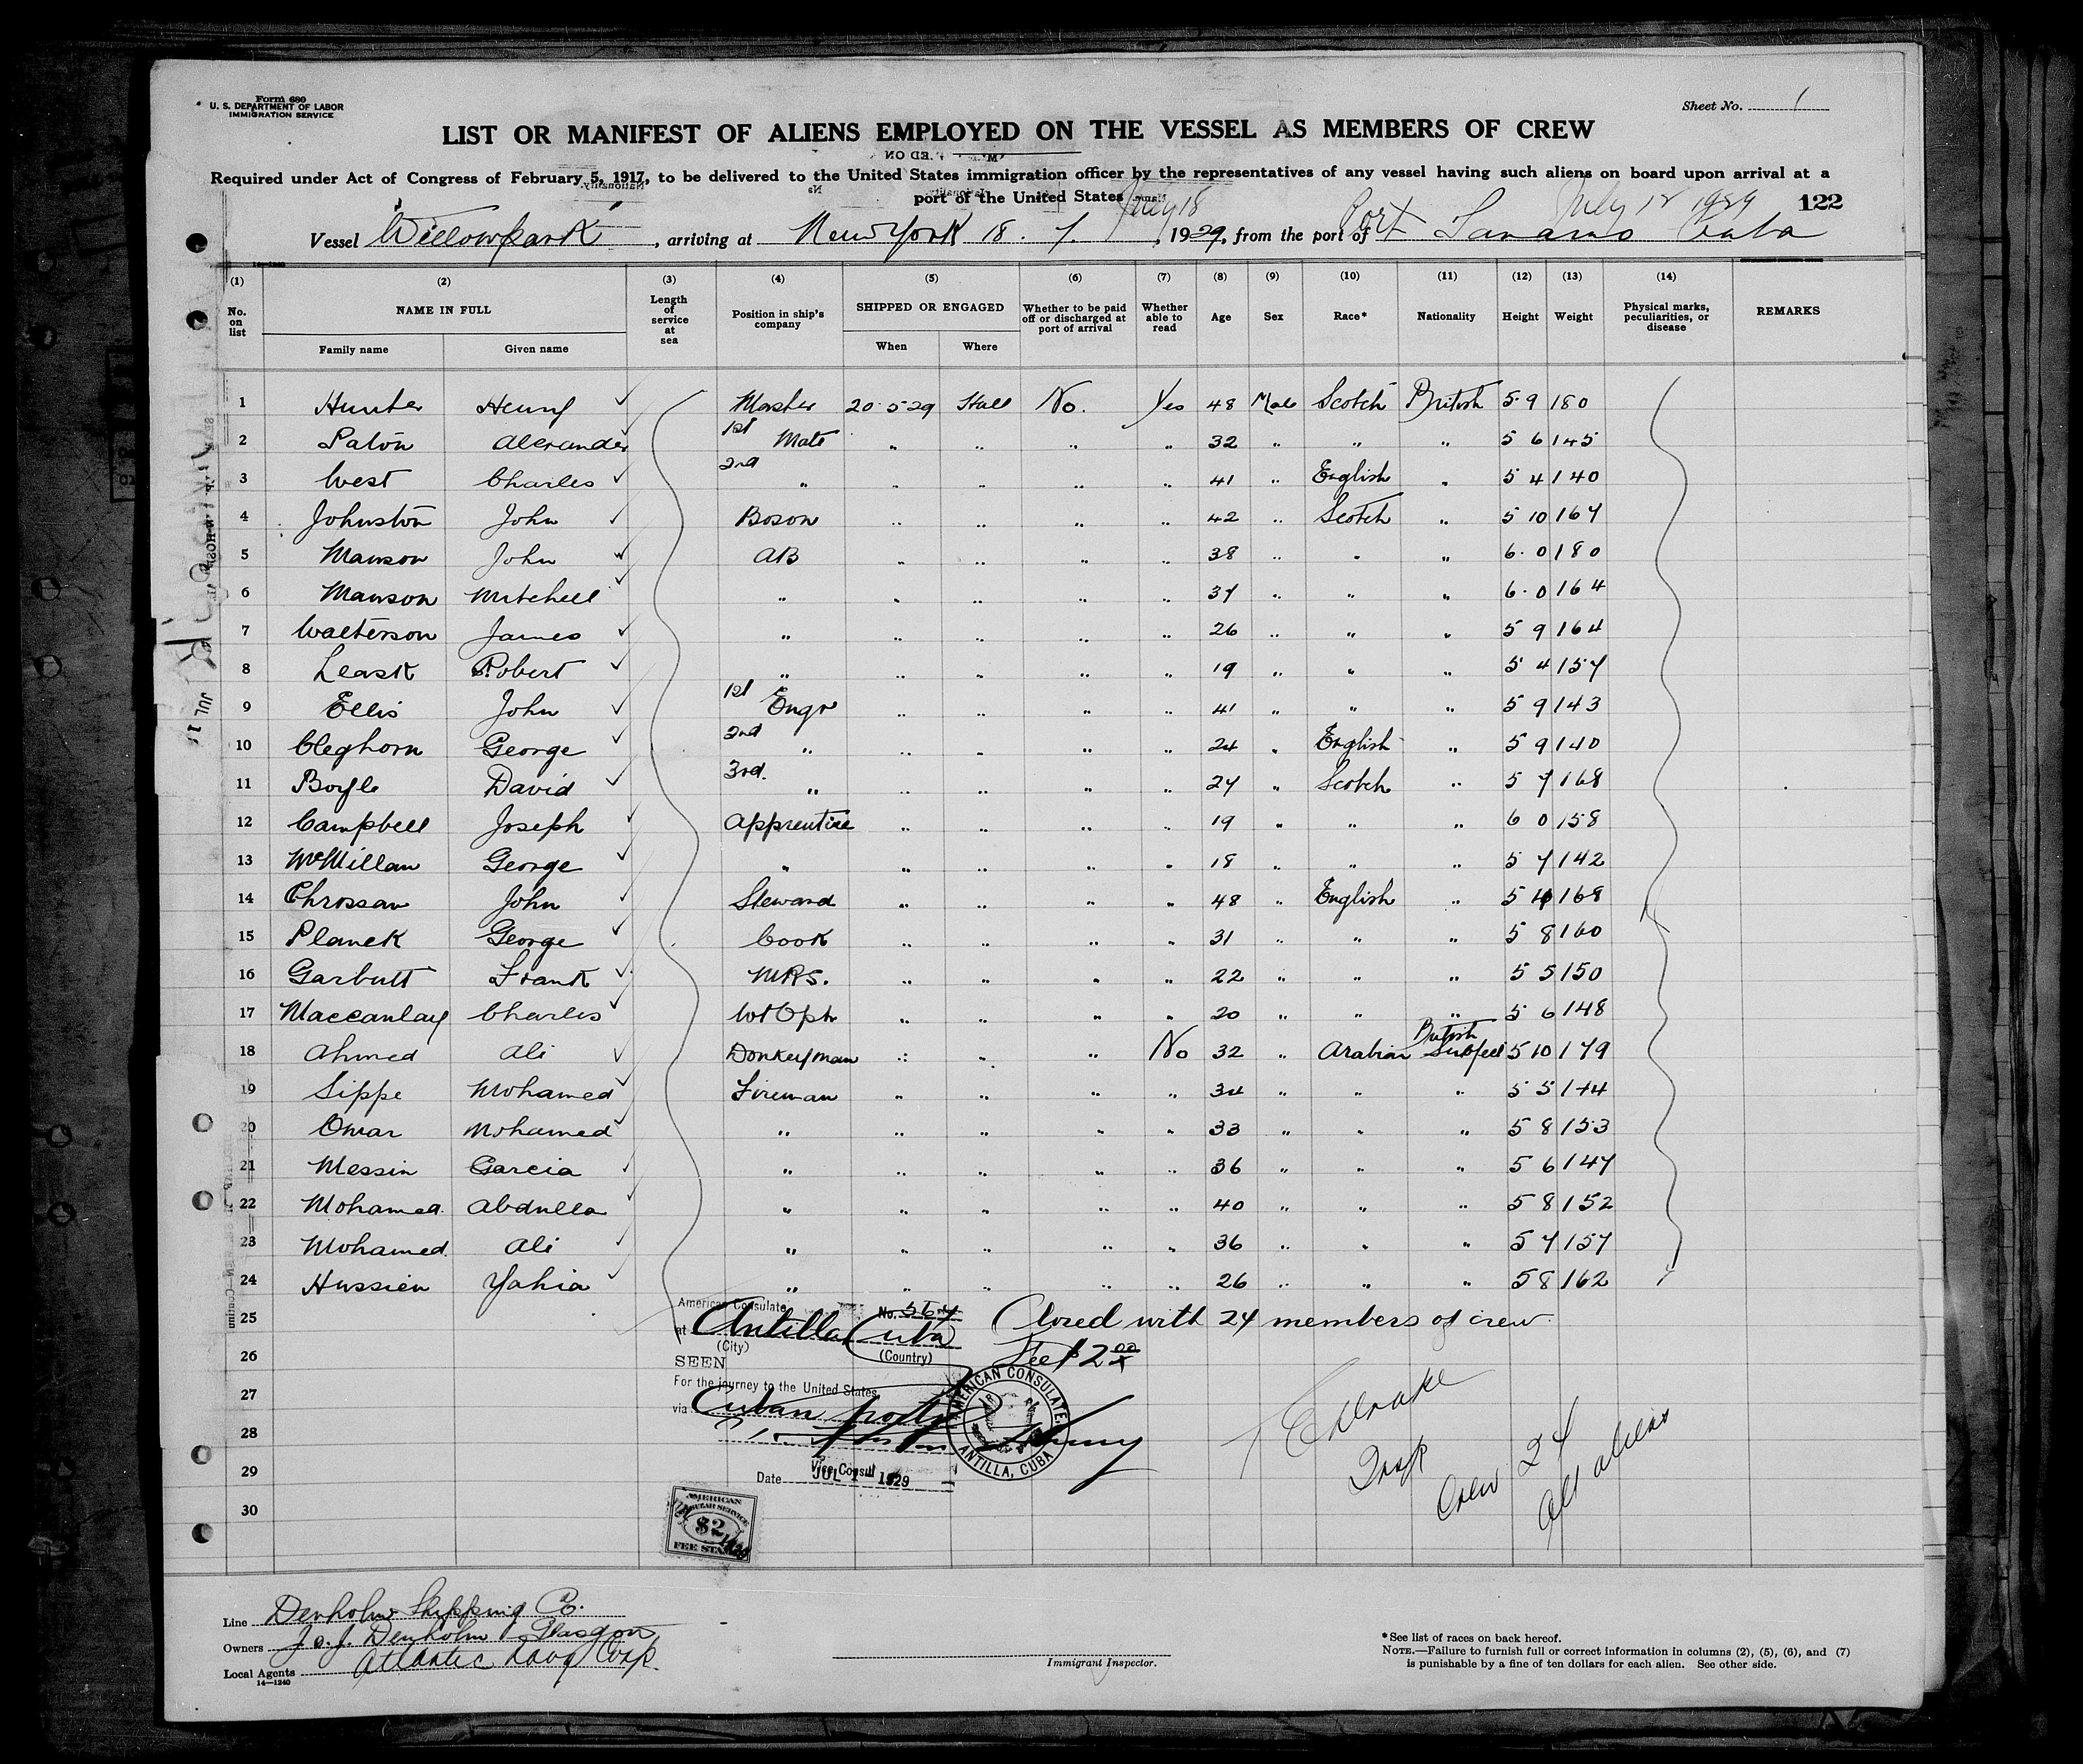 Form 680
U. S. DEPARTMENT OF LABOR
IMMIGRATION SERVICE
Sheet No. 1
LIST OR MANIFEST OF ALIENS EMPLOYED ON THE VESSEL AS MEMBERS OF CREW
Required under Act of Congress of February 5, 1917, to be delivered to the United States immigration officer by the representatives of any vessel having such aliens on board upon arrival at a
port of the United States July 18 July 12 1929 122
Vessel "Willowpark", arriving at New York 18. 7., 1929, from the port of Port Tanamo Cuba
(1) (2) (3) (4) (5) (6) (7) (8) (9) (10) (11) (12) (13) (14)
No. on list NAME IN FULL Length of service at sea Position in ship's company SHIPPED OR ENGAGED Whether to be paid off or discharged at port of arrival Whether able to read Age Sex Race* Nationality Height Weight Physical marks, peculiarities, or disease REMARKS
Family name Given name When Where
1 Hunter Henry ✓ Master 20.5.29 Hull No. Yes 48 Male Scotch British 5.9 180
2 Paton Alexander 1st Mate " " " " 32 " " " 5 6 145
3 West Charles ✓ 2nd " " " " " 41 " English " 5 4 140
4 Johnston John ✓ Boson " " " " 42 " Scotch " 5 10 167
5 Manson John ✓ AB " " " " 38 " " " 6.0 180
6 Manson Mitchell ✓ " " " " " 37 " " " 6.0 164
7 Walterson James ✓ " " " " " 26 " " " 5 9 164
8 Leask Robert ✓ " " " " " 19 " " " 5 4 157
9 Ellis John ✓ 1st Engr " " " " 41 " " " 5 9 143
10 Cleghorn George ✓ 2nd " " " " " 24 " English " 5 9 140
11 Boyle David ✓ 3rd. " " " " " 27 " Scotch " 5 7 168
12 Campbell Joseph ✓ Apprentice " " " " 19 " " " 6 0 158
13 McMillan George ✓ " " " " " 18 " " " 5 7 142
14 Chrossan John ✓ Steward " " " " 48 " English " 5 4 168
15 Planck George ✓ Cook " " " " 31 " " " 5 8 160
16 Garbutt Frank ✓ MRS. " " " " 22 " " " 5 5 150
17 Maccanlay Charles ✓ Wt Optr " " " " 20 " " " 5 6 148
18 Ahmed Ali ✓ Donkeyman " " " No 32 " Arabian British Subject 5 10 179
19 Sippe Mohamed ✓ Fireman " " " " 34 " " " 5 5 144
20 Omar Mohamed ✓ " " " " " 33 " " " 5 8 153
21 Messin Garcia ✓ " " " " " 36 " " " 5 6 147
22 Mohamed. Abdulla ✓ " " " " " 40 " " " 5 8 152
23 Mohamed. Ali ✓ " " " " " 36 " " " 5 7 157
24 Hussien Yahia ✓ " " " " " 26 " " " 5 8 162
25 American Consulate No. 567
at Antilla Cuba Closed with 24 members of crew.
(City) (Country)
26 SEEN Fee $2 00
27 For the journey to the United States
via Cuban ports
AMERICAN CONSULATE.
ANTILLA, CUBA
28
Vice Consul
29 Date JUL 1929
30
Insp
Crew 24
All aliens
AMERICAN
CONSULAR SERVICE
$2
FEE STAMP
Line Denholm Shipping Co.
Owners J. & J. Denholm Glasgow
Local Agents Atlantic Corp.
14—1240
Immigrant Inspector.
*See list of races on back hereof.
NOTE.—Failure to furnish full or correct information in columns (2), (5), (6), and (7)
is punishable by a fine of ten dollars for each alien. See other side.